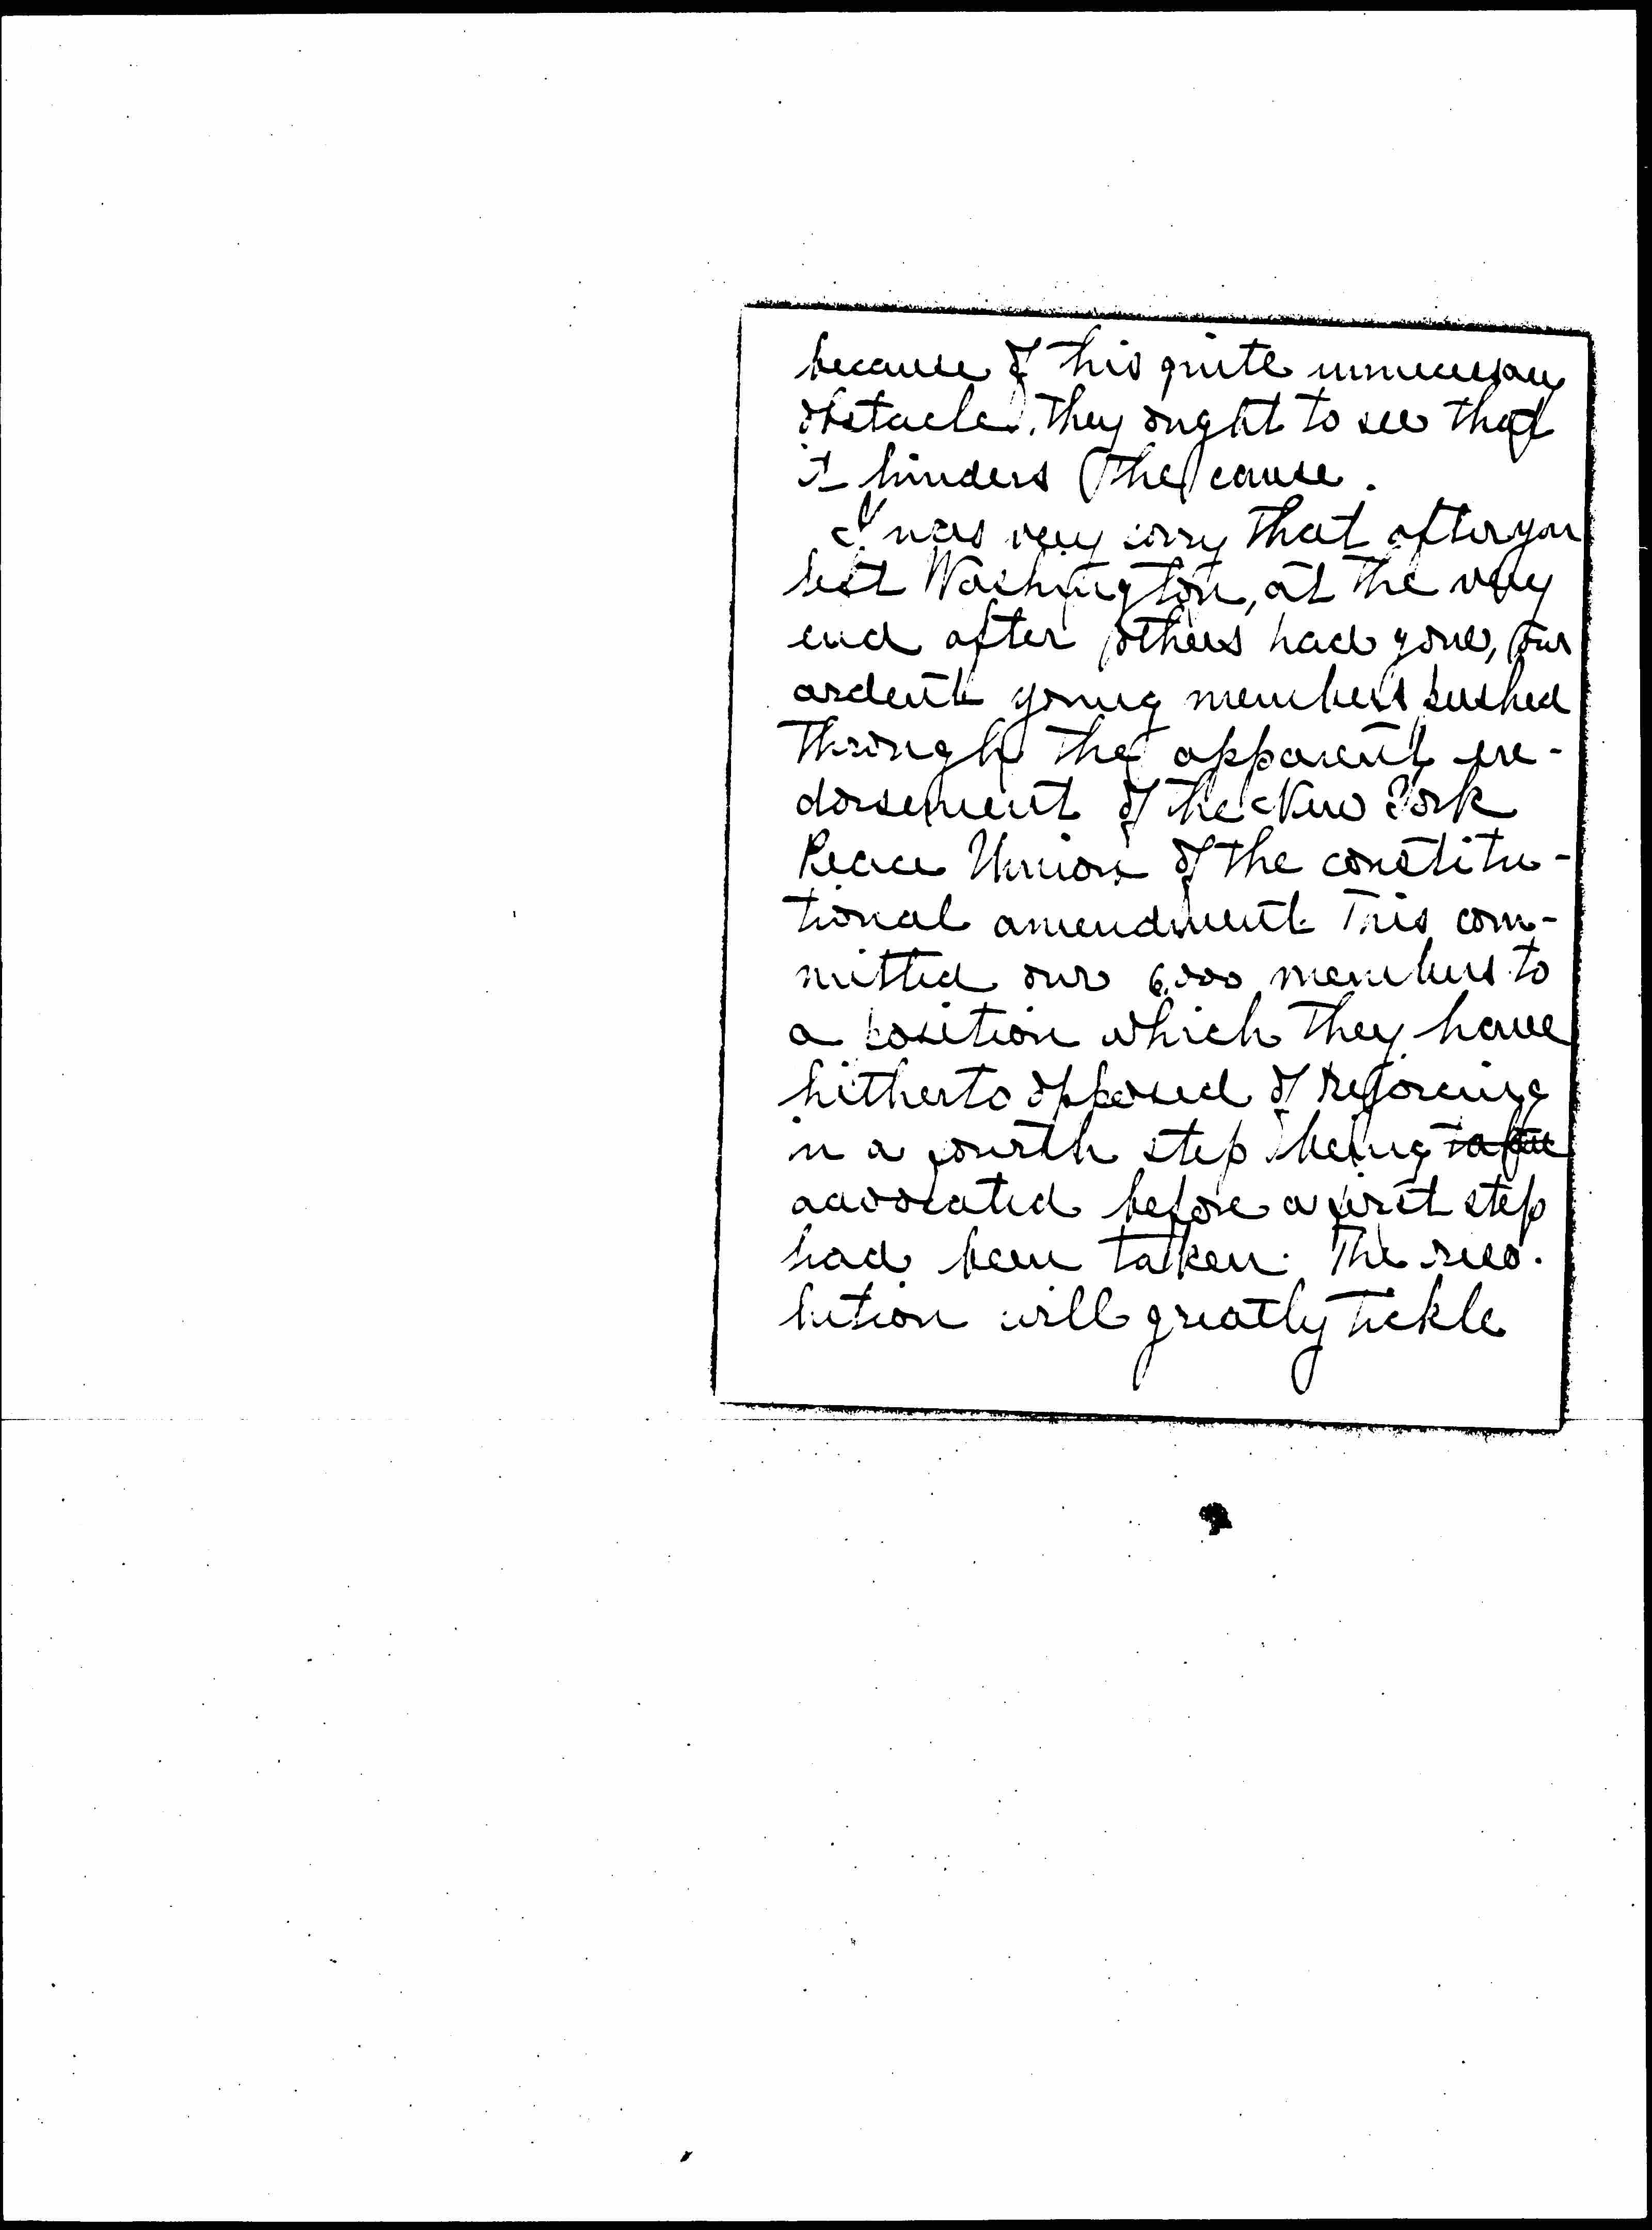 because of this quite unnecessary
obstacle. They ought to see that
it hinders the cause.
I was very sorry that after you
left Washington, at the very
end after others had gone, our
ardent young members pushed
through the apparent en-
dorsement of the New York
Peace Union of the constitu-
tional amendment This com-
mitted our 6,000 members to
a position which they have
hitherto opposed of rejoicing
in a fourth step being
advocated before a first step
had been taken. The reso-
lution will greatly tickle